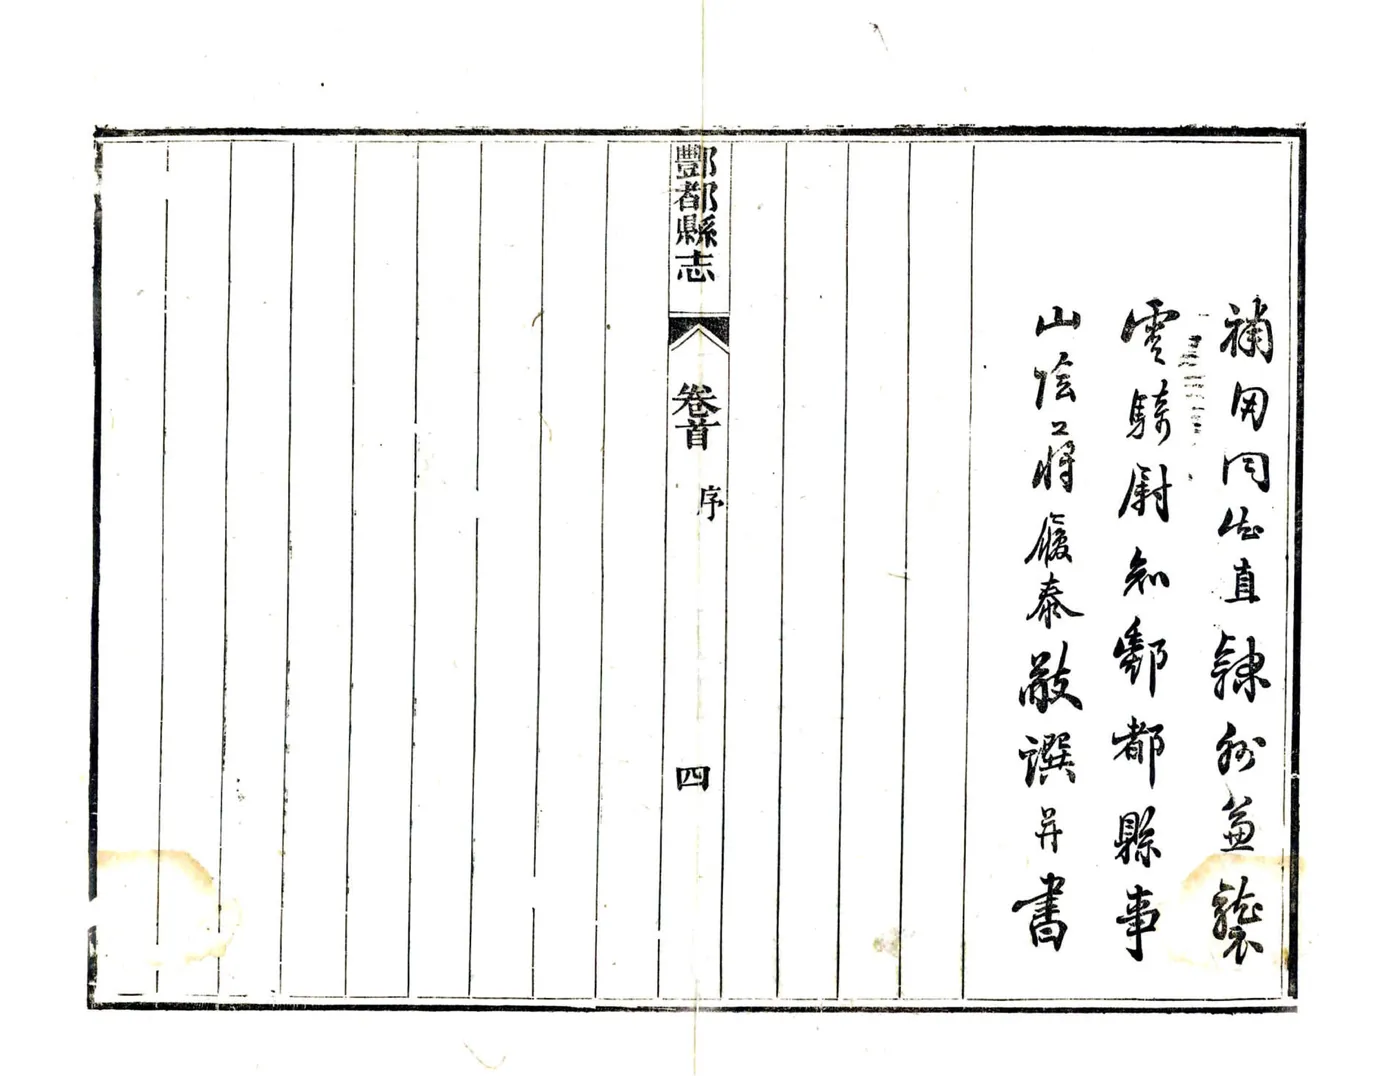 補用同知直隸州兼襲
雲騎尉知酆都縣事
山陰蔣履泰敬譔并書
酆都縣志
卷首
序
四